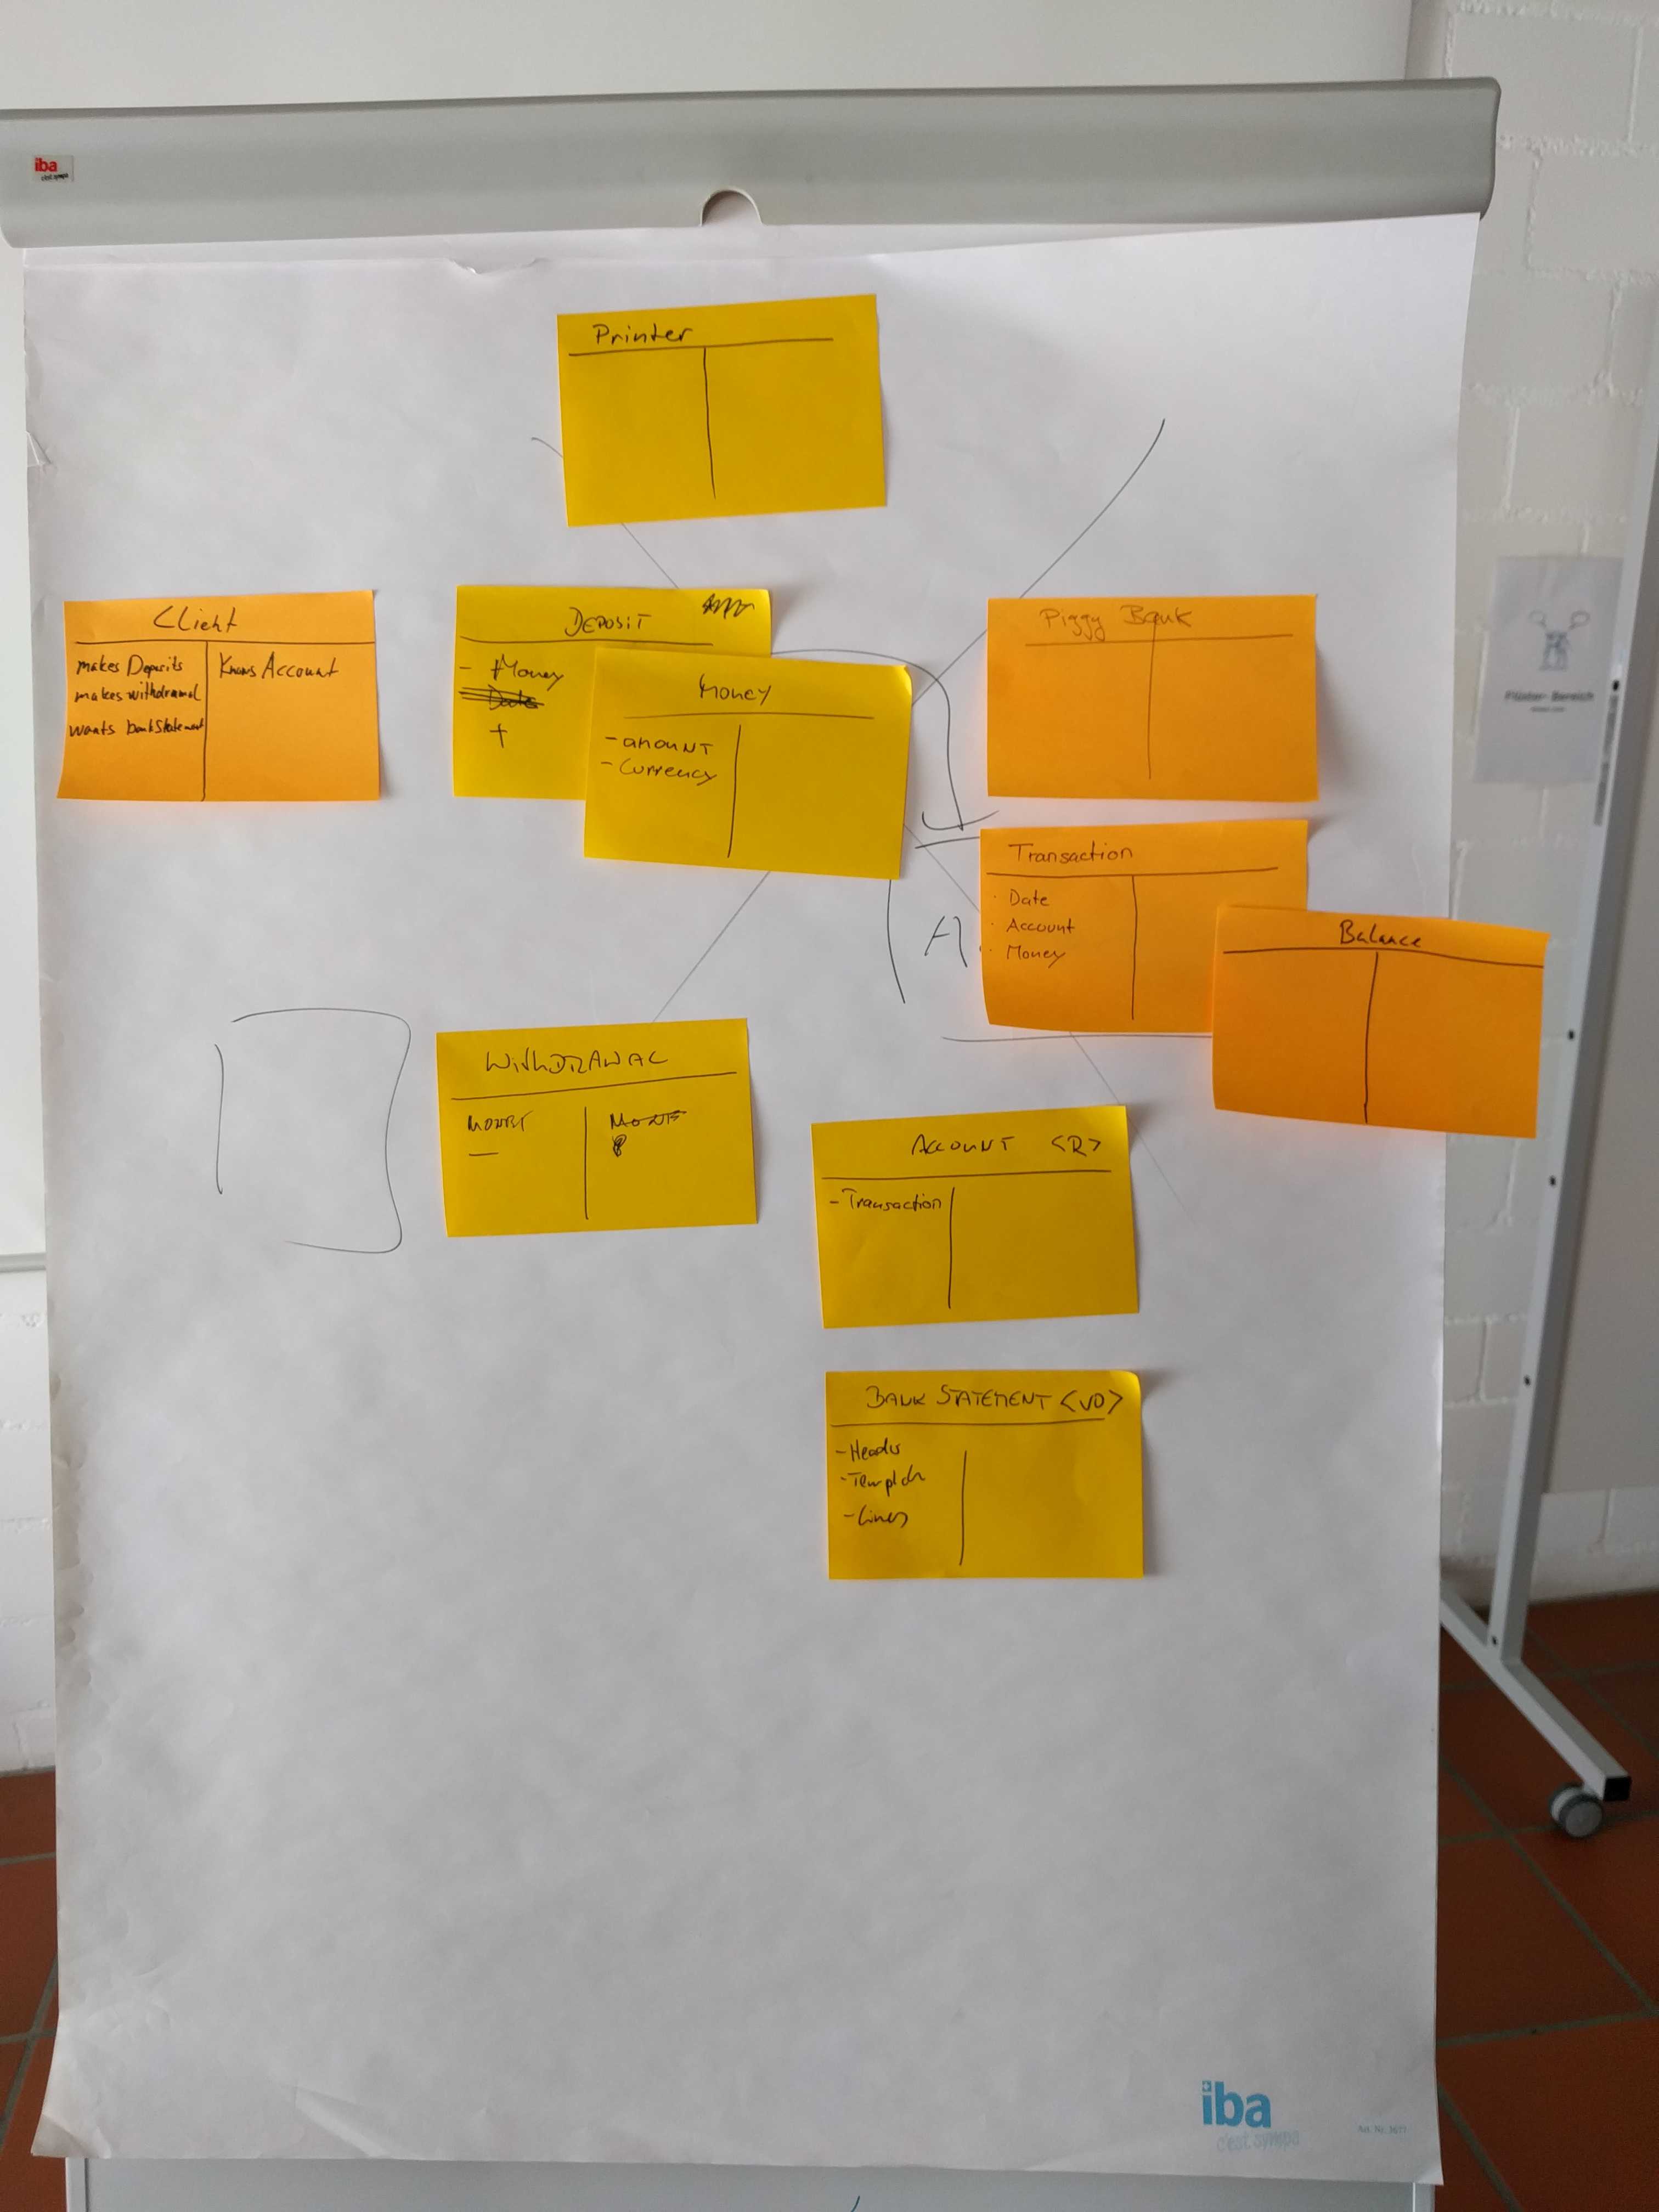 iba
c'est sympa
Printer
Client
makes Deposits
makes withdrawal
wants bankstatement
Knows Account
DEPOSIT
- Money
Date
+
Money
- amount
- Currency
Piggy Bank
Transaction
· Date
· Account
· Money
Balance
A
WITHDRAWAL
MONEY
—
ACCOUNT <R>
- Transaction
BANK STATEMENT <VO>
- Header
- Template
- Lines
Flüster-Bereich
iba
c'est sympa